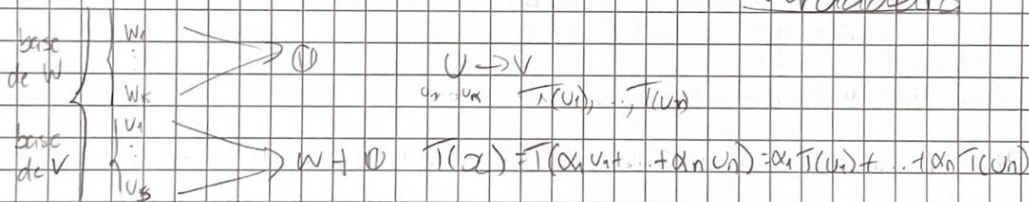 base
de W
w₁
⋮
wₖ
U → V
u₁...uₙ T(u₁), ..., T(uₙ)
base
de V
v₁
⋮
T(x) = T(α₁u₁+...+αₙuₙ) = α₁T(u₁)+...+αₙT(uₙ)